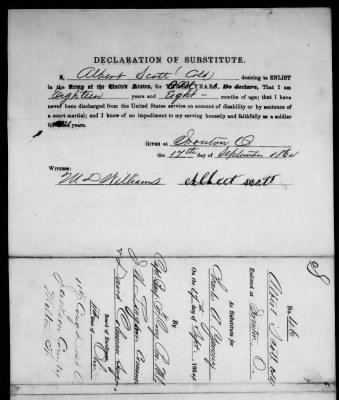 DECLARATION OF SUBSTITUTE.
I, Albert Scott (Cold) desiring to ENLIST
in the Army of the United States, for One YEARS, Do declare, That I am
Eighteen years and Eight months of age; that I have
never been discharged from the United States service on account of disability or by sentence of
a court martial; and I know of no impediment to my serving honestly and faithfully as a soldier
for years.
GIVEN at Ironton O
the 17th day of September 1864
WITNESS:
M D Williams Albert Scott
No.
Albert Scott Cold
Enlisted at Ironton O.
As Substitute for
On the day of Sept. 1864
By
Board of Enrollment
District of Ohio
11th Cong Dist O.
Jackson County
Milton Tp.